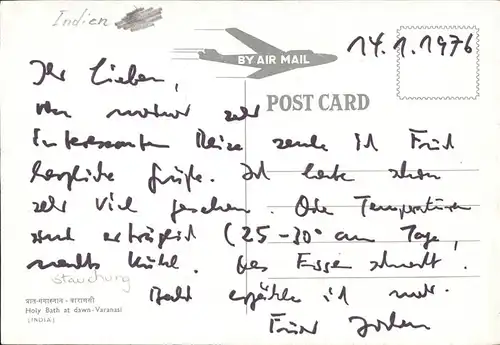 Indien
BY AIR MAIL
14.1.1976
POST CARD
Ihr Lieben,
von meiner sehr
interessanten Reise sende ich Euch
herzliche Grüße. Ich habe schon
sehr viel gesehen. Die Temperaturen
sind erträglich (25-30° am Tage,
nachts kühl. Das Essen schmeckt.
Bald erzähle ich mehr.
Euer Jochen
प्रात-गंगास्नान - वाराणसी
Holy Bath at dawn-Varanasi
(INDIA)